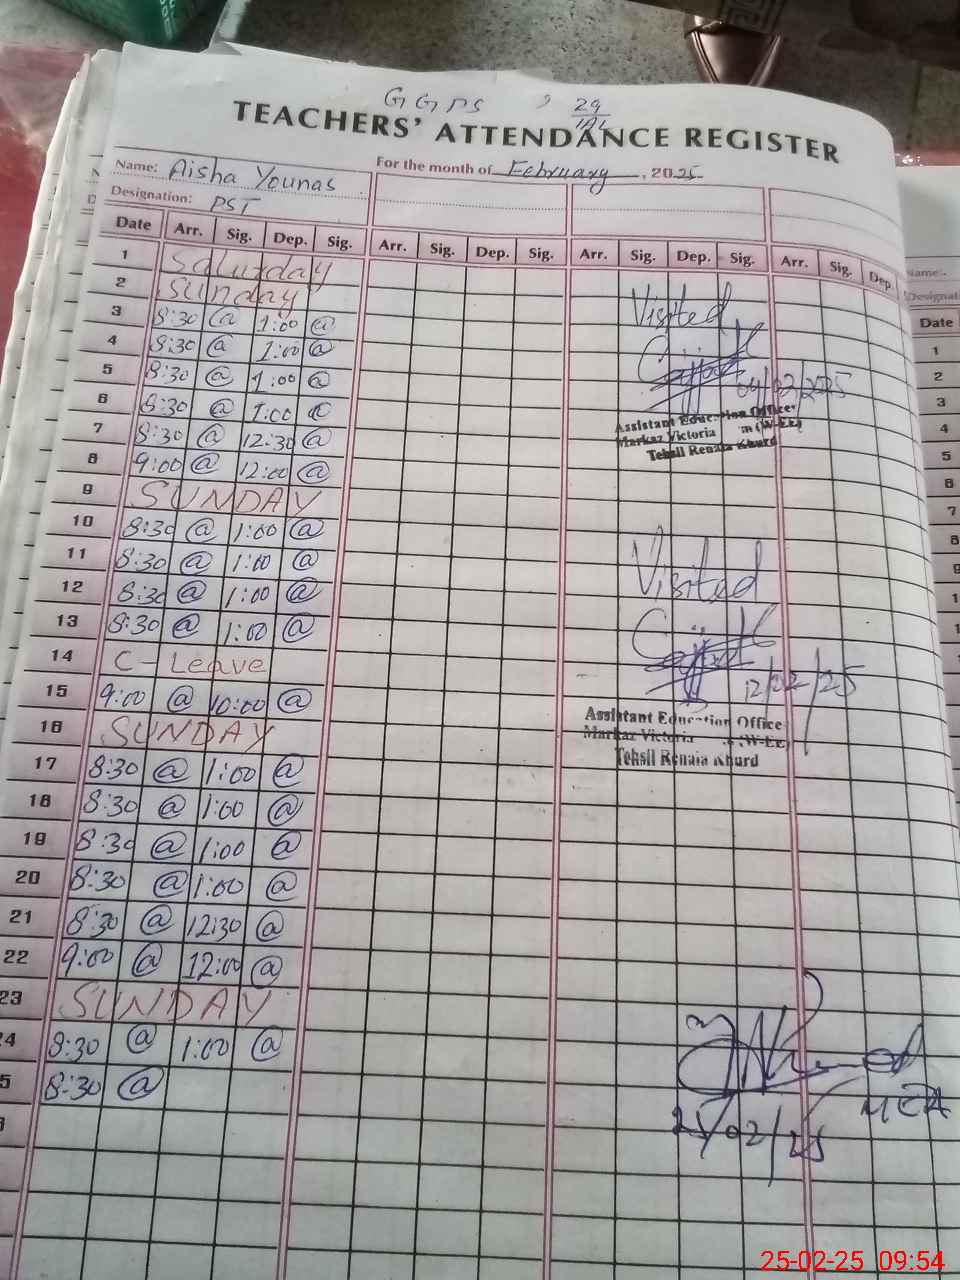 GGPS , 29
TEACHERS' ATTENDANCE REGISTER
Name: Aisha Younas For the month of February, 2025
Designation: PST
Date Arr. Sig. Dep. Sig. Arr. Sig. Dep. Sig. Arr. Sig. Dep. Sig. Arr. Sig. Dep.
1 Saturday
2 Sunday
3 8:30 @ 1:00 @
4 8:30 @ 1:00 @
5 8:30 @ 1:00 @
6 8:30 @ 1:00 @
7 8:30 @ 12:30 @
8 9:00 @ 12:00 @
9 SUNDAY
10 8:30 @ 1:00 @
11 8:30 @ 1:00 @
12 8:30 @ 1:00 @
13 8:30 @ 1:00 @
14 C-Leave
15 9:00 @ 10:00 @
16 SUNDAY
17 8:30 @ 1:00 @
18 8:30 @ 1:00 @
19 8:30 @ 1:00 @
20 8:30 @ 1:00 @
21 8:30 @ 12:30 @
22 9:00 @ 12:00 @
23 SUNDAY
24 8:30 @ 1:00 @
25 8:30 @
Visited
04/02/2025
Assistant Education Officer
Markaz Victoria (W-EE)
Tehsil Renala Khurd
Visited
12/02/25
Assistant Education Officer
Markaz Victoria (W-EE)
Tehsil Renala Khurd
MEA
25/02/25
Name:
Designati
Date
1
2
3
4
5
6
7
8
9
25-02-25 09:54